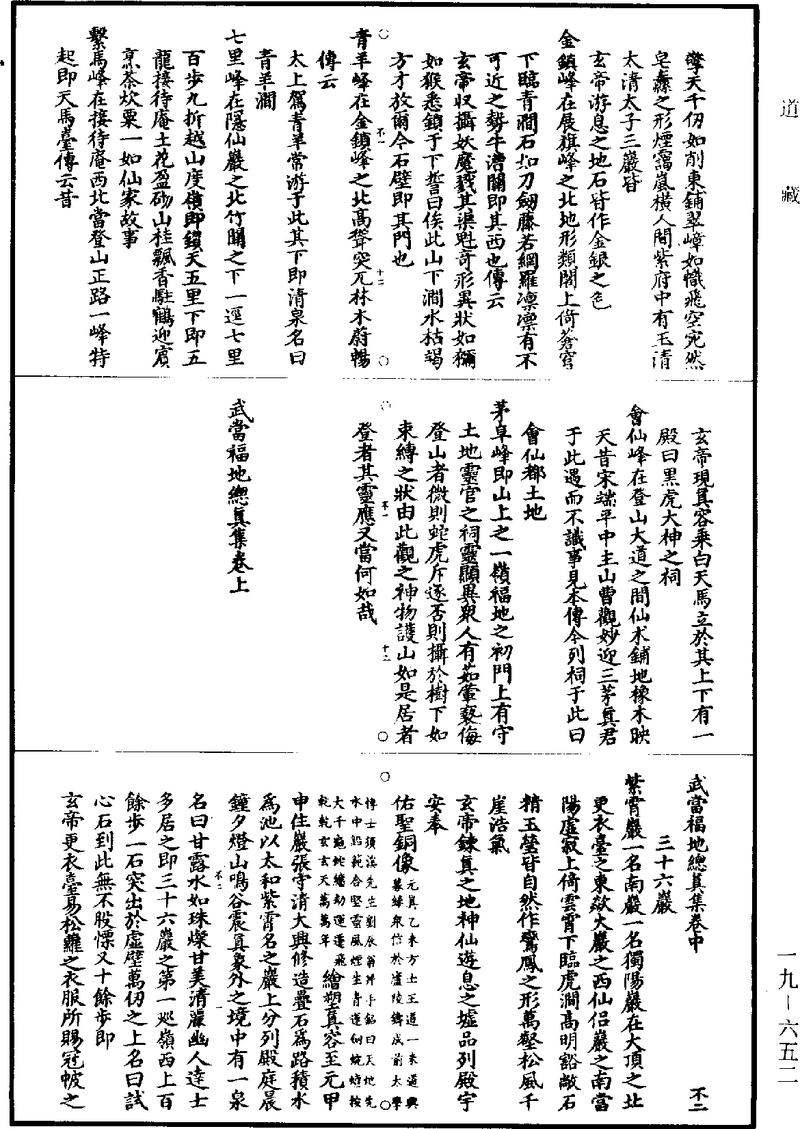 道藏
擎天千仞如削東鋪翠嶂如幟飛空宛然
皂纛之形煙靄嵐橫人間紫府中有玉清
太清太子三巖皆
玄帝游息之地石皆作金銀之色
金鎖峰在展旗峰之北地形類閣上倚蒼穹
下臨青澗石如刀劒藤若網羅凛凛有不
可近之勢牛漕關即其西也傳云
玄帝收攝妖魔戮其渠魁奇形異狀如獼
如猴悉鎖于下誓曰俟此山下澗水枯竭
方才放爾今石壁即其門也
青羊峰在金鎖峰之北高聳突兀林木蔚暢
傳云
太上駕青羊常游于此其下即清泉名曰
青羊澗
七里峰在隱仙巖之北竹關之下一逕七里
百步九折越山度嶺即鎖天五里下即五
龍接待庵土花盈砌山桂飄香駐鶴迎賓
烹茶炊粟一如仙家故事
繫馬峰在接待庵西北當登山正路一峰特
起即天馬臺傳云昔
不一
十二
玄帝現真容乘白天馬立於其上下有一
殿曰黑虎大神之祠
會仙峰在登山大道之間仙术鋪地橡木映
天昔宋端平中主山曹觀妙迎三茅真君
于此遇而不識事見本傳今列祠于此曰
會仙都土地
茅阜峰即山上之一嶺福地之初門上有守
土地靈官之祠靈顯異衆人有茹葷褻侮
登山者微則蛇虎斥逐否則攝於樹下如
束縛之狀由此觀之神物護山如是居者
登者其靈應又當何如哉
不一
十三
武當福地總真集卷上
武當福地總真集卷中
不二
三十六巖
紫霄巖一名南巖一名獨陽巖在大頂之北
更衣臺之東欻火巖之西仙侶巖之南當
陽虛寂上倚雲霄下臨虎澗高明豁敞石
精玉瑩皆自然作鸞鳳之形萬壑松風千
崖浩氣
玄帝鍊真之地神仙遊息之墟品列殿宇
安奉
佑聖銅像元貞乙未方士王道一米道興
募緣衆信於廬陵鑄成前太學
博士須溪先生劉辰翁作手銘曰天地先
水中鉛範合堅靈風煙生青蓮劒蜿蜒按
大千龜蛇纏劫運遷飛
乾乾玄玄天萬萬年繪塑真容至元甲
申住巖張守清大興修造疊石爲路積水
爲池以太和紫霄名之巖上分列殿庭晨
鐘夕燈山鳴谷震真象外之境中有一泉
名曰甘露水如珠燦甘美清灑幽人達士
多居之即三十六巖之第一巡嶺西上百
餘步一石突出於虛壁萬仞之上名曰試
心石到此無不股慄又十餘步即
玄帝更衣臺易松蘿之衣服所賜冠帔之
不二
一九—六五二